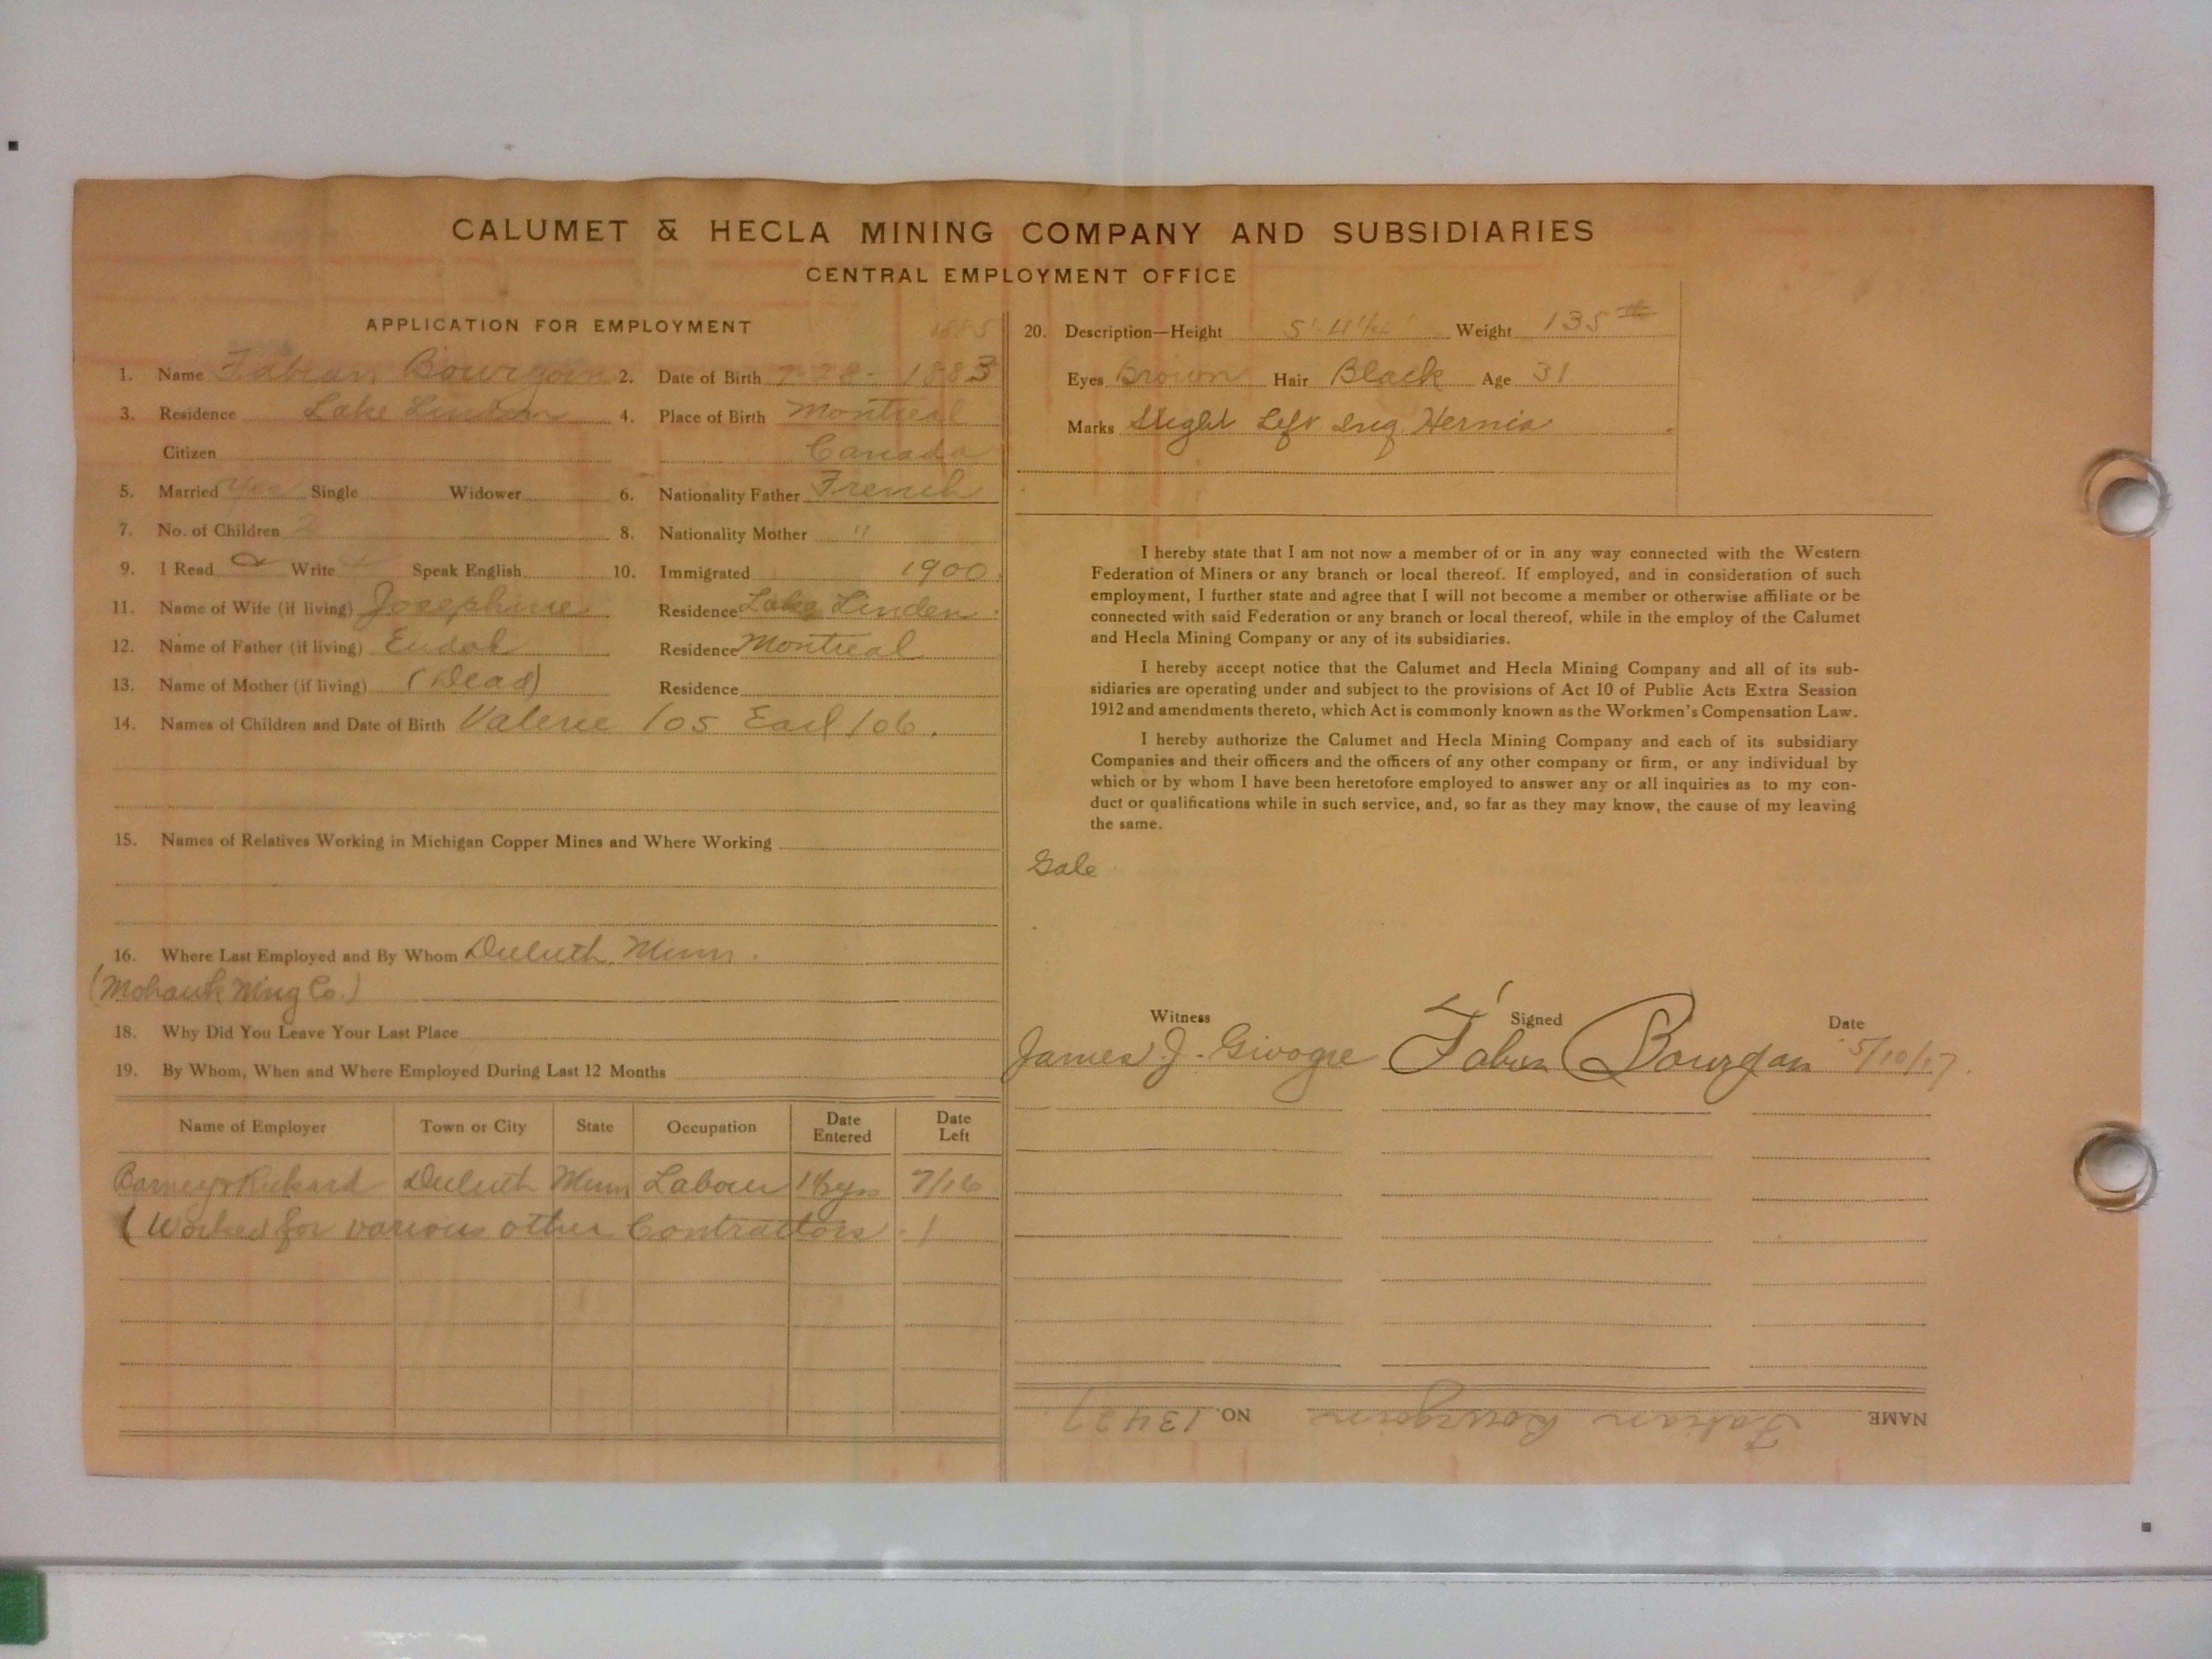 CALUMET & HECLA MINING COMPANY AND SUBSIDIARIES
CENTRAL EMPLOYMENT OFFICE
APPLICATION FOR EMPLOYMENT
1885
1. Name Fabian Bourgoin 2. Date of Birth 7-28-1883
3. Residence Lake Linden 4. Place of Birth Montreal
Citizen Canada
5. Married Yes Single Widower 6. Nationality Father French
7. No. of Children 2 8. Nationality Mother "
9. I Read Write Speak English 10. Immigrated 1900
11. Name of Wife (if living) Josephine Residence Lake Linden
12. Name of Father (if living) Residence Montreal
13. Name of Mother (if living) (Dead) Residence
14. Names of Children and Date of Birth Valerie /05 Earl /06.
15. Names of Relatives Working in Michigan Copper Mines and Where Working
16. Where Last Employed and By Whom Duluth, Minn.
(Mohawk Mng Co.)
18. Why Did You Leave Your Last Place
19. By Whom, When and Where Employed During Last 12 Months
Name of Employer Town or City State Occupation Date Entered Date Left
Duluth Minn 7/16
(Worked for various other Contractors.)
20. Description—Height Weight 135
Eyes Brown Hair Black Age 31
Marks Slight Left Ing. Hernia
I hereby state that I am not now a member of or in any way connected with the Western
Federation of Miners or any branch or local thereof. If employed, and in consideration of such
employment, I further state and agree that I will not become a member or otherwise affiliate or be
connected with said Federation or any branch or local thereof, while in the employ of the Calumet
and Hecla Mining Company or any of its subsidiaries.
I hereby accept notice that the Calumet and Hecla Mining Company and all of its sub-
sidiaries are operating under and subject to the provisions of Act 10 of Public Acts Extra Session
1912 and amendments thereto, which Act is commonly known as the Workmen's Compensation Law.
I hereby authorize the Calumet and Hecla Mining Company and each of its subsidiary
Companies and their officers and the officers of any other company or firm, or any individual by
which or by whom I have been heretofore employed to answer any or all inquiries as to my con-
duct or qualifications while in such service, and, so far as they may know, the cause of my leaving
the same.
Gale
Witness Signed Date
James J. 5/10/17
NAME Fabian Bourgoin NO. 13427